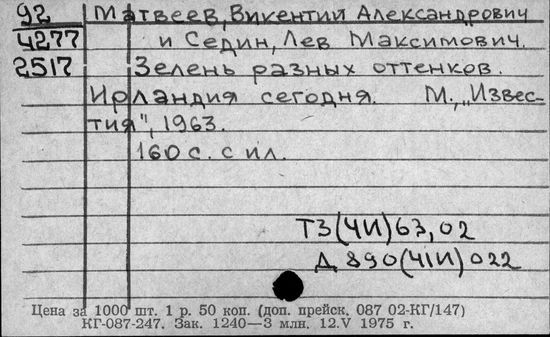 92
4277
2517
Матвеев, Викентий Александрович
и Седин, Лев Максимович.
Зелень разных оттенков.
Ирландия сегодня. М., „Извес-
тия", 1963.
160 с. с ил.
Т3(4И)63,02
Д 890(41И)022
Цена за 1000 шт. 1 р. 50 коп. (доп. прейск. 087 02-КГ/147)
КГ-087-247. Зак. 1240—3 млн. 12.V 1975 г.